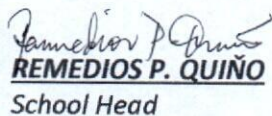 REMEDIOS P. QUIÑO
School Head